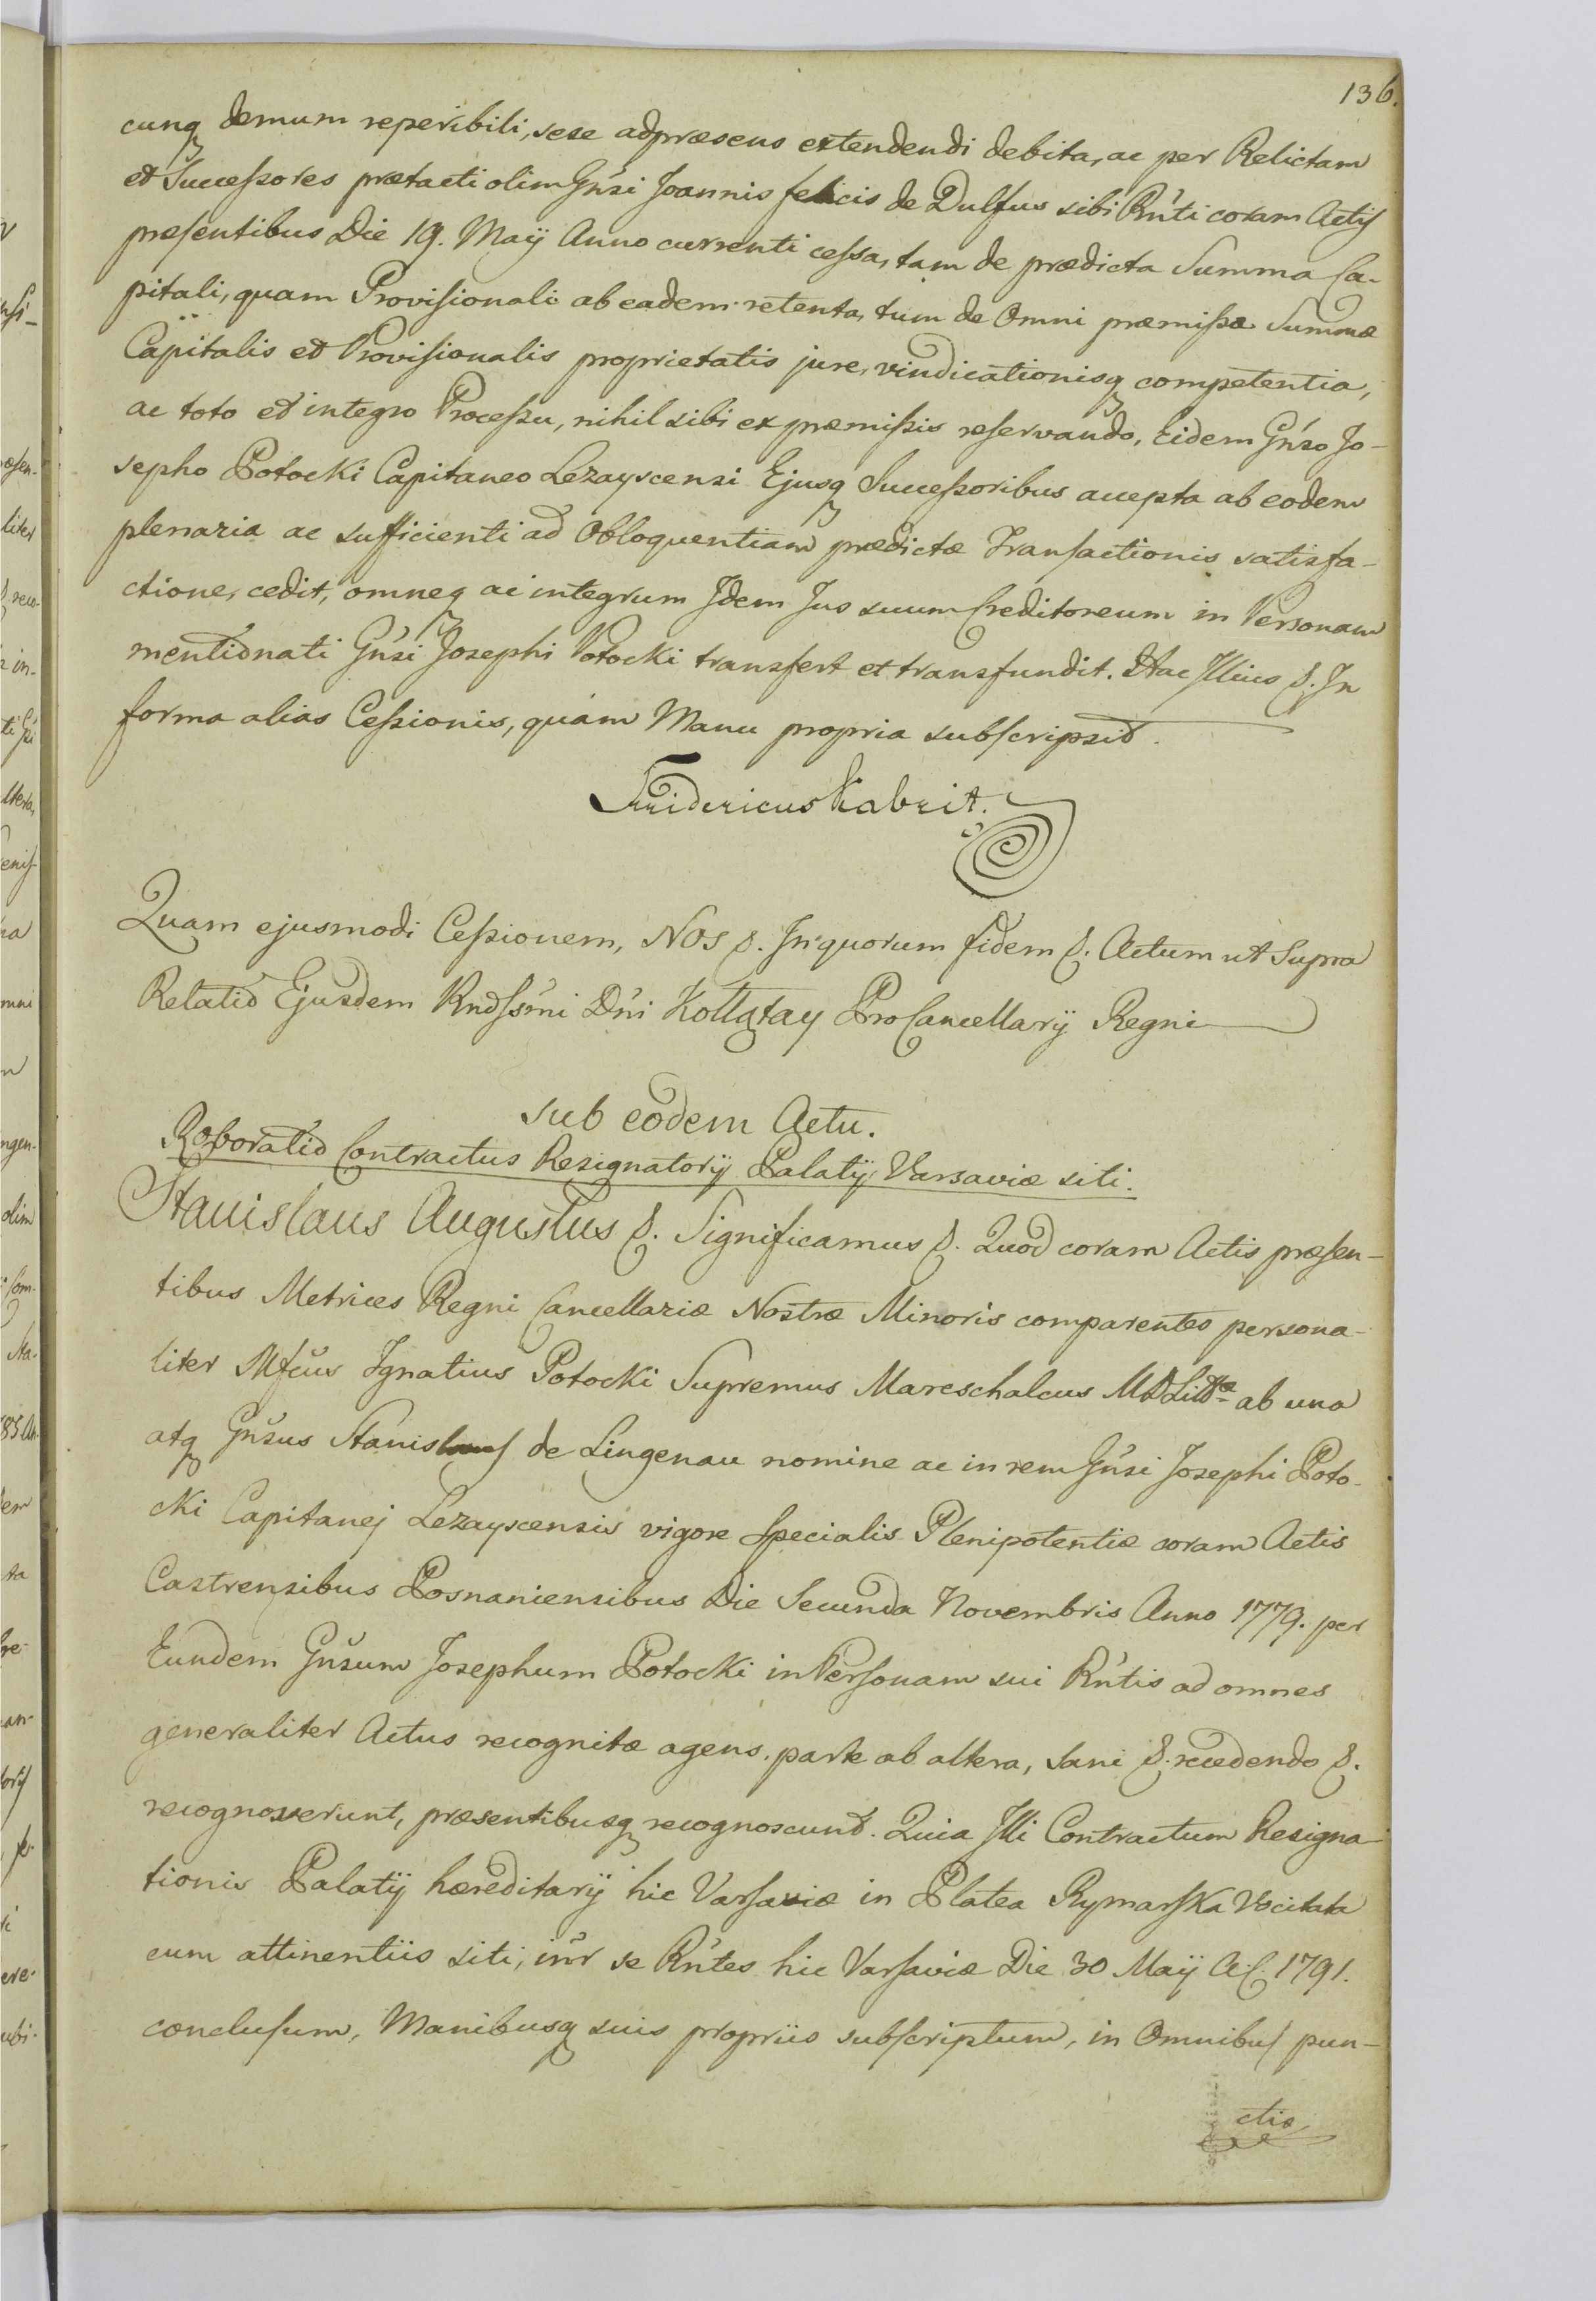 136.
cunq demum reperibili, sese adpræsens extendendi debita, ac per Relictam
et Successores prætacti olim Gn̄si Joannis felicis de Dulfus sibi Rn̄ti coram Actis
præsentibus Die 19. Maÿ Anno currenti cessa, tam de prædicta Summa Ca-
pitali, quam Provisionali ab eadem retenta, tum de Omni præmissæ Summæ
Capitalis et Provisionalis proprietatis jure, vindicationisq competentia,
ac toto et integro Processu, nihil sibi ex præmissis reservando, Eidem Gn̄so Jo-
sepho Potocki Capitaneo Lezayscensi Ejusq Successoribus accepta ab eodem
plenaria ac sufficienti ad Obloquentiam prædictæ Transactionis satisfa-
ctione, cedit, omneq ac integrum Idem Jus suum Creditoreum in Personam
mentionati Gn̄si Josephi Potocki transfert et transfundit. Hac Illius &. In
forma alias Cessionis, quam Manu propria subscripsit.
Fridericus Kabrit.
Quam ejusmodi Cessionem, NOS &. In quorum fidem &. Actum ut Supra
Relatio Ejusdem Rndssmi Dn̄i Kołłątay ProCancellarÿ Regni
sub eodem Actu.
Roboratio Contractus Resignatorÿ Palatÿ Varsaviæ siti.
Stanislaus Augustus &. Significamus &. Quod coram Actis præsen-
tibus Metrices Regni Cancellariæ Nostræ Minoris comparentes persona-
liter Mfcus Ignatius Potocki Supremus Mareschalcus MDLittæ ab una
atq Gn̄sus Stanislaus de Lingenau nomine ac in rem Gn̄si Josephi Poto-
cki Capitanej Lezayscensis vigore Specialis Plenipotentiæ coram Actis
Castrensibus Posnaniensibus Die Secunda Novembris Anno 1779. per
Eundem Gn̄sum Josephum Potocki in Personam sui Rn̄tis ad omnes
generaliter Actus recognitæ agens. parte ab altera, Sani &. recedendo &.
recognoverunt, præsentibusq recognoscunt. Quia Illi Contractum Resigna-
tionis Palatÿ hæreditarÿ hic Varsaviæ in Platea Rymarska Vocitata
cum attinentiis siti, in̄r se Rn̄tes hic Varsaviæ Die 30 Maÿ A.C. 1791.
conclusum, Manibusq suis propriis subscriptum, in Omnibus pun-
ctis